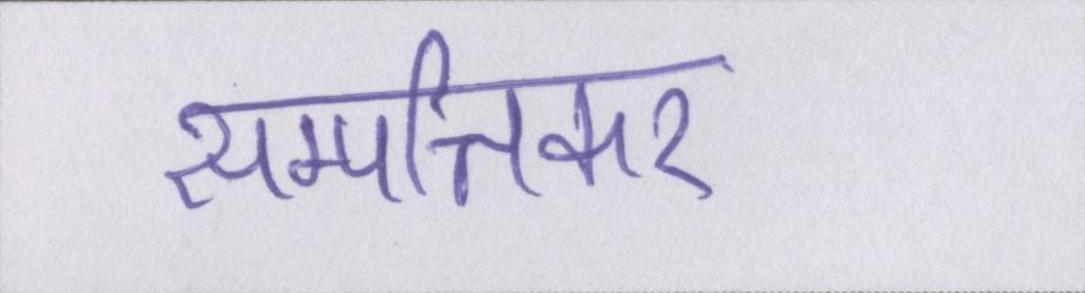 सम्पत्तिकर